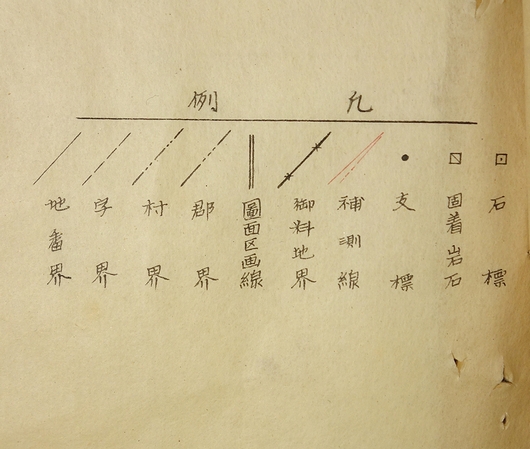 凡例
石標
固着岩石
支標
補測線
御料地界
圖面区画線
郡界
村界
字界
地番界